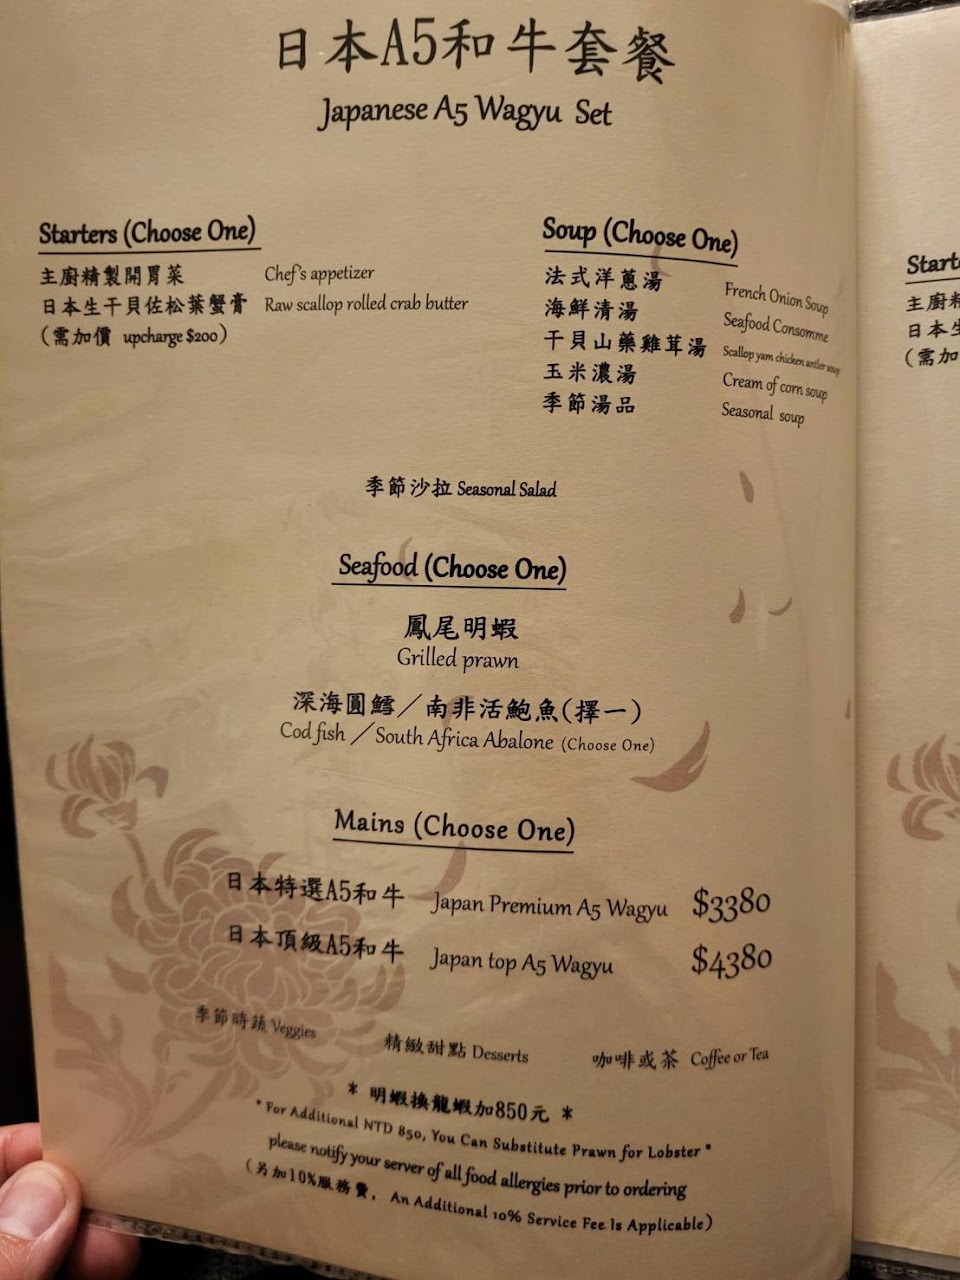 日本A5和牛套餐
Japanese A5 Wagyu Set
Starters (Choose One)
主廚精製開胃菜 Chef's appetizer
日本生干貝佐松葉蟹膏 Raw scallop rolled crab butter
(需加價 upcharge $200)
Soup (Choose One)
法式洋蔥湯 French Onion Soup
海鮮清湯 Seafood Consomme
干貝山藥雞茸湯 Scallop yam chicken antler soup
玉米濃湯 Cream of corn soup
季節湯品 Seasonal soup
季節沙拉 Seasonal Salad
Seafood (Choose One)
鳳尾明蝦
Grilled prawn
深海圓鱈／南非活鮑魚(擇一)
Cod fish ／South Africa Abalone (Choose One)
Mains (Choose One)
日本特選A5和牛 Japan Premium A5 Wagyu $3380
日本頂級A5和牛 Japan top A5 Wagyu $4380
季節時蔬 Veggies 精緻甜點 Desserts 咖啡或茶 Coffee or Tea
* 明蝦換龍蝦加850元 *
* For Additional NTD 850, You Can Substitute Prawn for Lobster *
please notify your server of all food allergies prior to ordering
(另加10%服務費, An Additional 10% Service Fee Is Applicable)
Start
主廚
日本
(需加